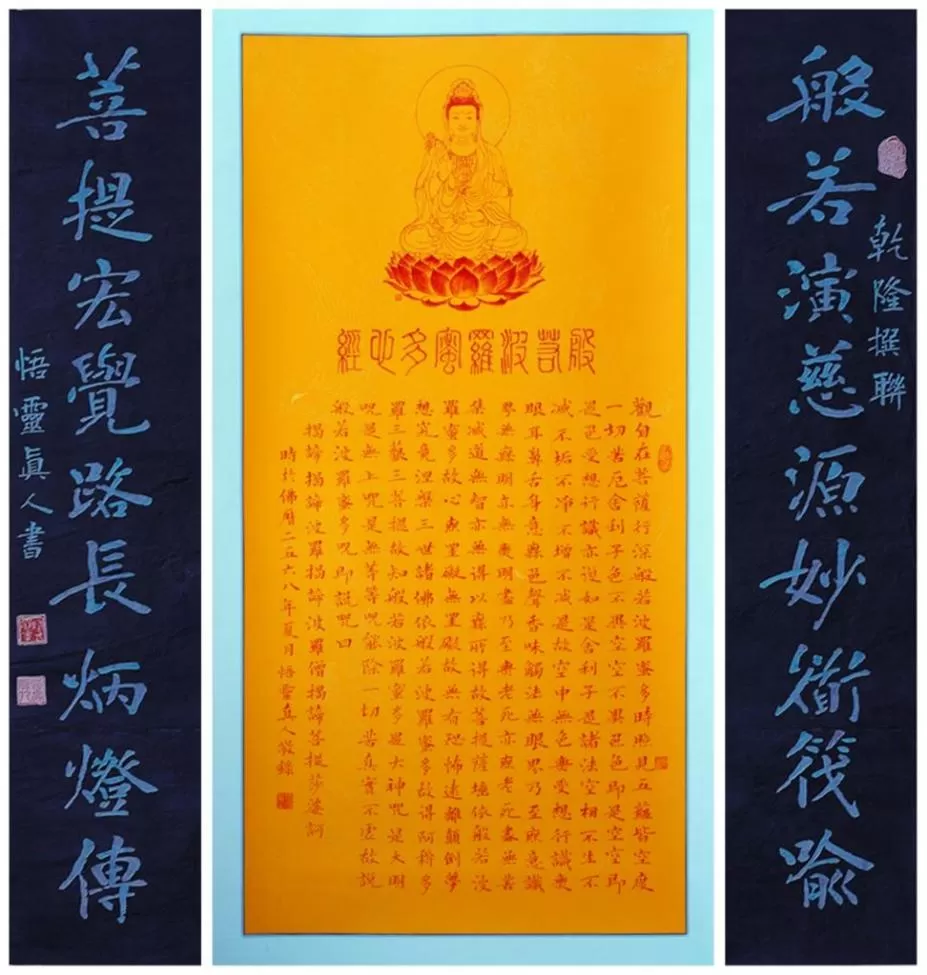 般若演慈源妙筏喻
乾隆撰聯
般若波羅蜜多心經
觀自在菩薩行深般若波羅蜜多時照見五蘊皆空度
一切苦厄舍利子色不異空空不異色色即是空空即
是色受想行識亦復如是舍利子是諸法空相不生不
滅不垢不淨不增不減是故空中無色無受想行識無
眼耳鼻舌身意無色聲香味觸法無眼界乃至無意識
界無無明亦無無明盡乃至無老死亦無老死盡無苦
集滅道無智亦無得以無所得故菩提薩埵依般若波
羅蜜多故心無罣礙無罣礙故無有恐怖遠離顛倒夢
想究竟涅槃三世諸佛依般若波羅蜜多故得阿耨多
羅三藐三菩提故知般若波羅蜜多是大神咒是大明
咒是無上咒是無等等咒能除一切苦真實不虛故說
般若波羅蜜多咒即說咒曰
揭諦揭諦波羅揭諦波羅僧揭諦菩提莎婆訶
時於佛曆二五六八年夏月悟靈真人敬錄
菩提宏覺路長炳燈傳
悟靈眞人書